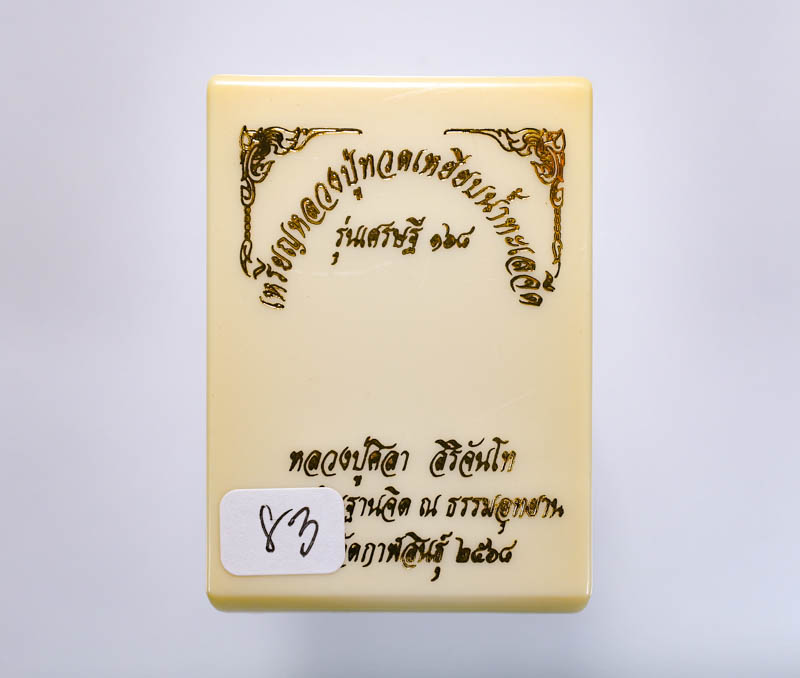 เหรียญหลวงปู่ทวดเหยียบน้ำทะเลจืด
รุ่นเศรษฐี ๑๖๘
หลวงปู่ศิลา สิริจันโท
ณ ธรรมอุทยาน
๒๕๖๘
83